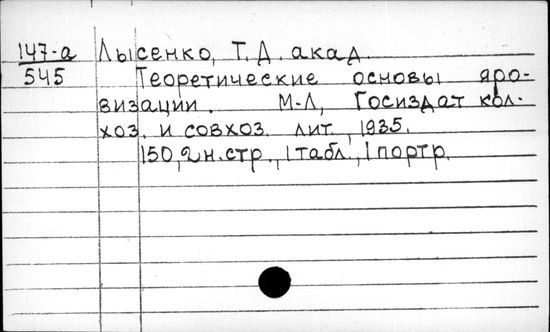 147-а Лысенко, Т.Д. акад.
545 Теоретические основы яро-
визации. М-Л, Госиздат кол-
хоз. и совхоз. лит, 1935.
150,2н.стр., 1 табл., 1 портр.